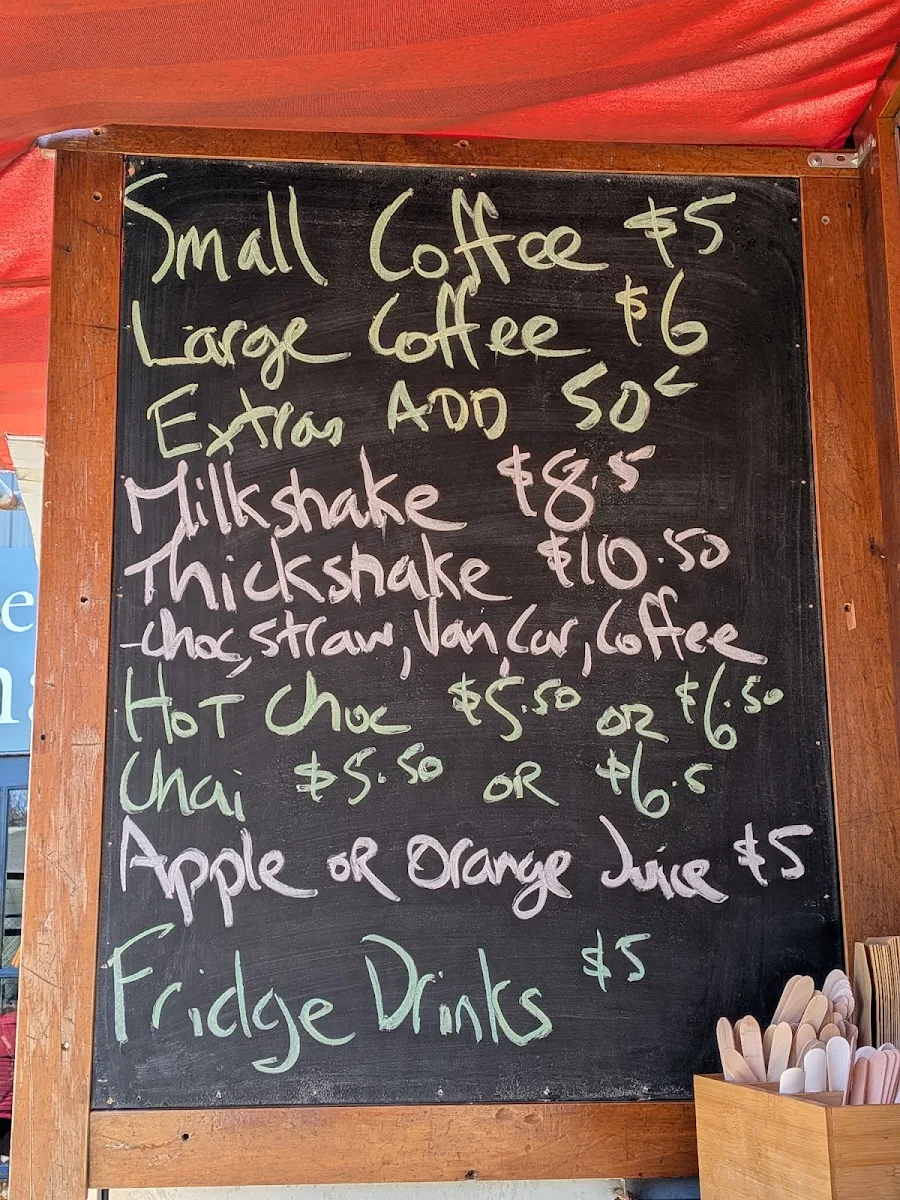 Small Coffee $5
Large Coffee $6
Extras ADD 50c
Milkshake $8.5
Thickshake $10.50
-Choc, Straw, Van, Car, Coffee
HOT Choc $5.50 OR $6.50
Chai $5.50 OR $6.5
Apple OR Orange Juice $5
Fridge Drinks $5